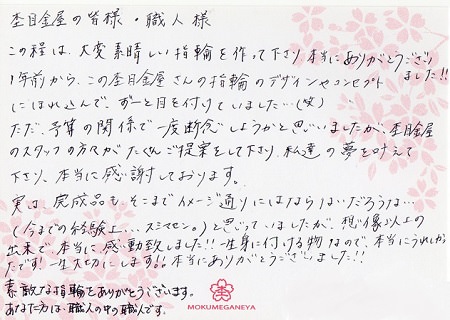 杢目金屋の皆様・職人様
この程は、大変素晴しい指輪を作って下さり、本当にありがとうござい
ました!!
1年前から、この杢目金屋さんの指輪のデザインやコンセプト
にほれ込んで、ずーと目を付けていました…(笑)
ただ、予算の関係で一度断念しようかと思いましたが、杢目金屋
のスタッフの方々がたくさんご提案をして下さり、私達の夢を叶えて
下さり、本当に感謝しております。
実は、完成品も、そこまでイメージ通りにはならないだろうな…
(今までの経験上...スミマセン。)と思っていましたが、想像以上の
出来で、本当に感動致しました!!一生身に付ける物なので、本当にうれしかっ
たです!一生大切にします!!本当にありがとうございました!!
素敵な指輪をありがとうございます。
あなた方は、職人の中の職人です。
MOKUMEGANEYA